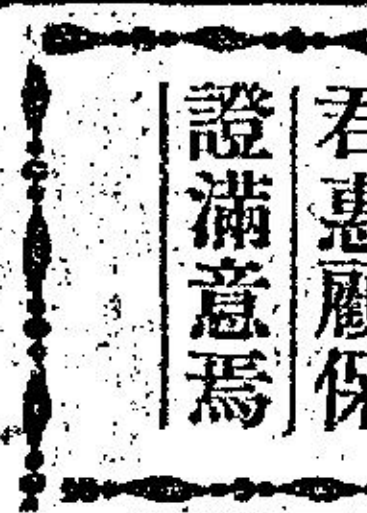 君惠顧保
證滿意焉